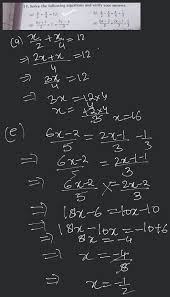 11. Solve the following equations and verify your answers.
(a) x/2 + x/4 = 12
⇒ (2x + x)/4 = 12
⇒ 3x/4 = 12
⇒ 3x = 12×4
x = x = 16
(e) (6x-2)/5 = (2x-1)/3 - 1/3
⇒ (6x-2)/5 = (2x-1-1)/3
⇒ (6x-2)/5 = (2x-2)/3
⇒ 18x-6 = 10x-10
⇒ 18x-10x = -10+6
⇒ 8x = -4
⇒ x = -4/8
⇒ x = -1/2